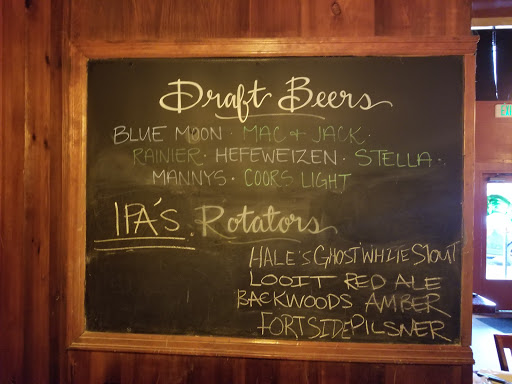 Draft Beers
BLUE MOON · MAC & JACK ·
RAINIER · HEFEWEIZEN · STELLA ·
MANNYS · COORS LIGHT
IPA'S Rotators
HALE'S GHOST WHITE STOUT
LOOIT RED ALE
BACKWOODS AMBER
FORTSIDE PILSNER